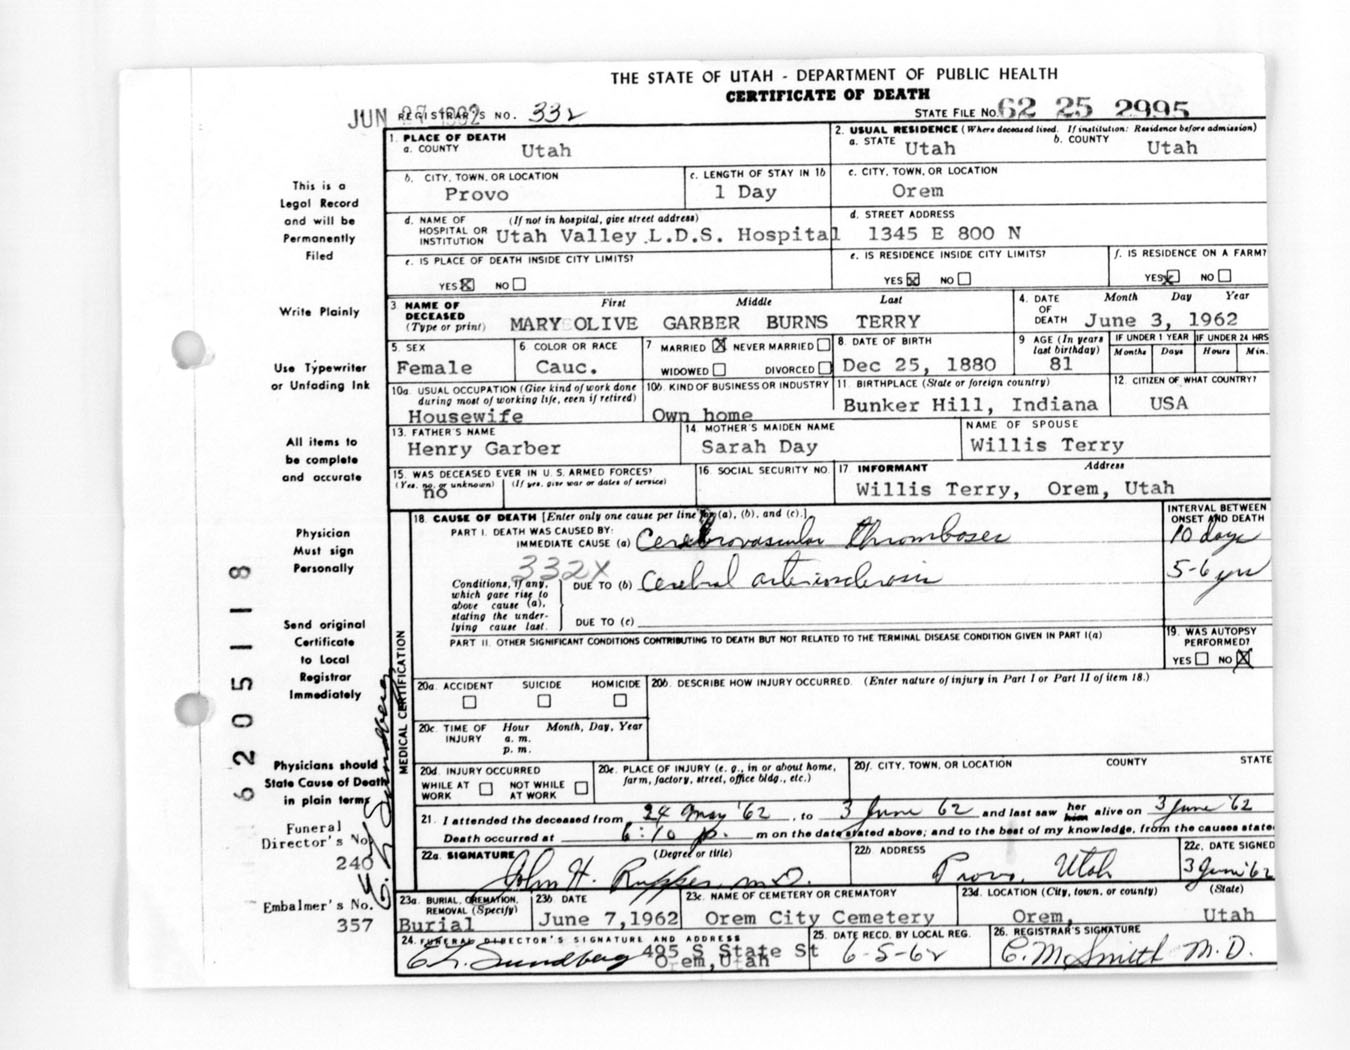 THE STATE OF UTAH - DEPARTMENT OF PUBLIC HEALTH
CERTIFICATE OF DEATH
JUN 27 1962 REGISTRAR'S NO. 332 STATE FILE NO. 62 25 2995
1. PLACE OF DEATH
a. COUNTY Utah
2. USUAL RESIDENCE (Where deceased lived. If institution: Residence before admission)
a. STATE Utah b. COUNTY Utah
b. CITY, TOWN, OR LOCATION Provo
c. LENGTH OF STAY IN 1b 1 Day
c. CITY, TOWN, OR LOCATION Orem
d. NAME OF HOSPITAL OR INSTITUTION (If not in hospital, give street address) Utah Valley L.D.S. Hospital
d. STREET ADDRESS 1345 E 800 N
e. IS PLACE OF DEATH INSIDE CITY LIMITS? YES NO
e. IS RESIDENCE INSIDE CITY LIMITS? YES NO
f. IS RESIDENCE ON A FARM? YES NO
3 NAME OF DECEASED (Type or print) First Middle Last
MARY OLIVE GARBER BURNS TERRY
4. DATE OF DEATH Month Day Year
June 3, 1962
5. SEX Female
6. COLOR OR RACE Cauc.
7 MARRIED NEVER MARRIED WIDOWED DIVORCED
8. DATE OF BIRTH Dec 25, 1880
9 AGE (In years last birthday) 81
IF UNDER 1 YEAR Months Days
IF UNDER 24 HRS Hours Min.
10a. USUAL OCCUPATION (Give kind of work done during most of working life, even if retired) Housewife
10b. KIND OF BUSINESS OR INDUSTRY Own home
11. BIRTHPLACE (State or foreign country) Bunker Hill, Indiana
12. CITIZEN OF WHAT COUNTRY? USA
13. FATHER'S NAME Henry Garber
14 MOTHER'S MAIDEN NAME Sarah Day
NAME OF SPOUSE Willis Terry
15. WAS DECEASED EVER IN U. S. ARMED FORCES?
(Yes, no, or unknown) (If yes, give war or dates of service)
no
16. SOCIAL SECURITY NO.
17 INFORMANT Address
Willis Terry, Orem, Utah
18. CAUSE OF DEATH [Enter only one cause per line for (a), (b), and (c).]
INTERVAL BETWEEN ONSET AND DEATH
PART I. DEATH WAS CAUSED BY:
IMMEDIATE CAUSE (a) Cerebrovascular thromboses 10 days
332X
Conditions, if any, which gave rise to above cause (a), stating the underlying cause last.
DUE TO (b) Cerebral arteriosclerosis 5-6 yrs
DUE TO (c)
PART II. OTHER SIGNIFICANT CONDITIONS CONTRIBUTING TO DEATH BUT NOT RELATED TO THE TERMINAL DISEASE CONDITION GIVEN IN PART I(a)
19. WAS AUTOPSY PERFORMED? YES NO
MEDICAL CERTIFICATION
20a. ACCIDENT SUICIDE HOMICIDE
20b. DESCRIBE HOW INJURY OCCURRED. (Enter nature of injury in Part I or Part II of item 18.)
20c. TIME OF INJURY Hour Month, Day, Year
a. m.
p. m.
20d. INJURY OCCURRED
WHILE AT WORK NOT WHILE AT WORK
20e. PLACE OF INJURY (e. g., in or about home, farm, factory, street, office bldg., etc.)
20f. CITY, TOWN, OR LOCATION COUNTY STATE
21. I attended the deceased from 24 May '62, to 3 June 62 and last saw her him alive on 3 June '62
Death occurred at 6:10 p. m on the date stated above; and to the best of my knowledge, from the causes state
22a. SIGNATURE (Degree or title) John H. M.D.
22b. ADDRESS Provo, Utah
22c. DATE SIGNED 3 June '62
23a. BURIAL, CREMATION, REMOVAL (Specify) Burial
23b DATE June 7, 1962
23c. NAME OF CEMETERY OR CREMATORY Orem City Cemetery
23d. LOCATION (City, town, or county) (State) Orem, Utah
24. FUNERAL DIRECTOR'S SIGNATURE AND ADDRESS
E L. Sundberg 495 S State St
Orem, Utah
25. DATE RECD. BY LOCAL REG. 6-5-62
26. REGISTRAR'S SIGNATURE C. M Smith M.D.
This is a
Legal Record
and will be
Permanently
Filed
Write Plainly
Use Typewriter
or Unfading Ink
All items to
be complete
and accurate
Physician
Must sign
Personally
Send original
Certificate
to Local
Registrar
Immediately
Physicians should
State Cause of Death
in plain terms
Funeral
Director's No.
240
Embalmer's No.
357
E. L. Sundberg
6205118